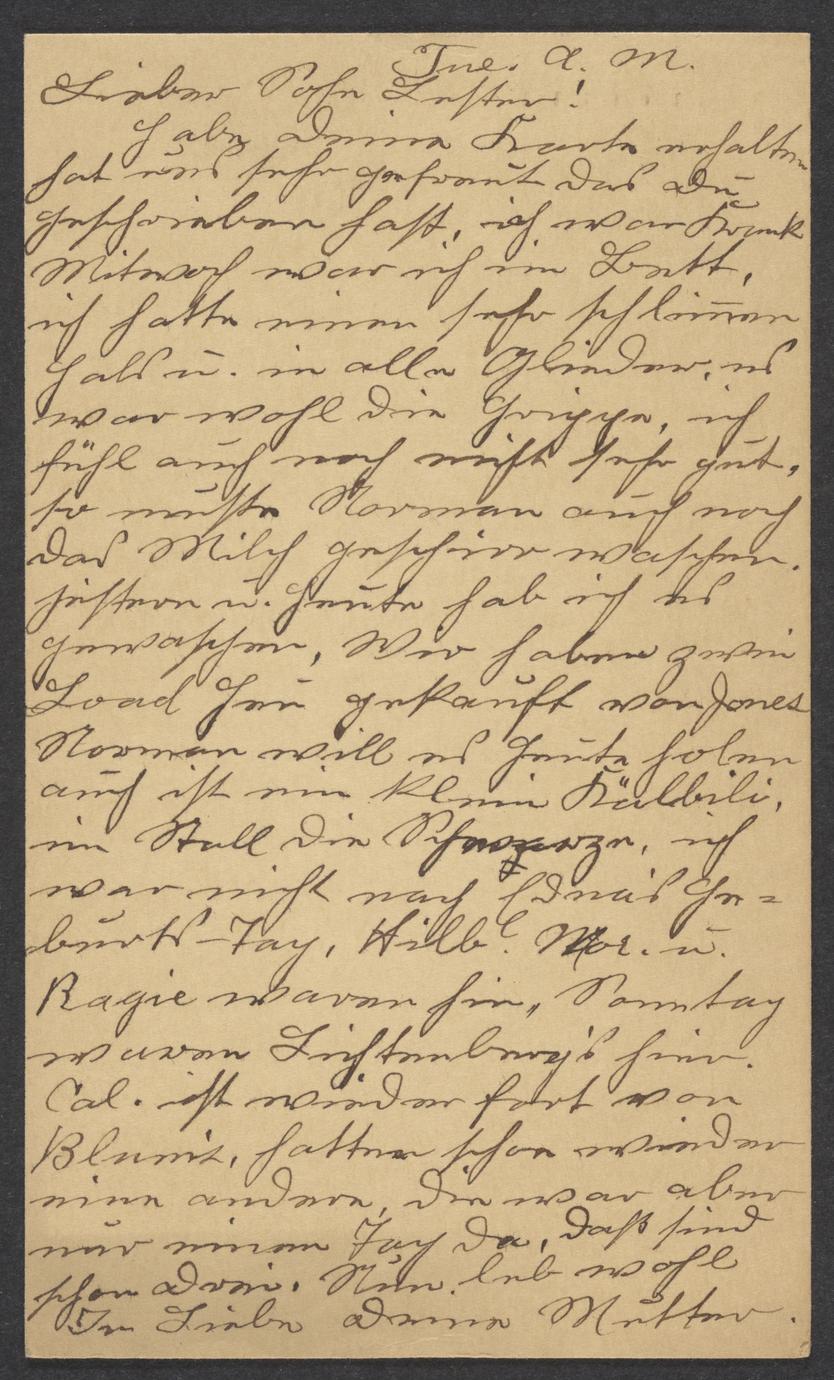 Tue. A. M.
Lieber Sohn Lester!
Habe Deine Karte erhalten
hat uns sehr gefreut das Du
geschrieben hast, ich war Krank
Mitwoch war ich im Bett,
ich hatte einen sehr schlim̄en
Hals u. in alle Glieder, es
war wohl die Grippe, ich
fühl auch noch nicht sehr gut,
so muste Norman auch noch
das Milch geschirr waschen.
jestern u. Heute hab ich es
gewaschen, Wir haben zwei
Load Heu gekauft von Jones
Norman will es Heute holen
auch ist ein klein Kälbili,
im Stall die Schwarze, ich
war nicht nach Edna's Ge=
burts-Tag, Hilb. Nor. u.
Ragie waren hin, Sonntag
waren Lichtenberg's hier.
Cal. ist wieder fort von
hatten schon wieder
eine andere, die war aber
nur einen Tag da, daß sind
schon Drei. Nun leb wohl
In Liebe Deine Mutter.